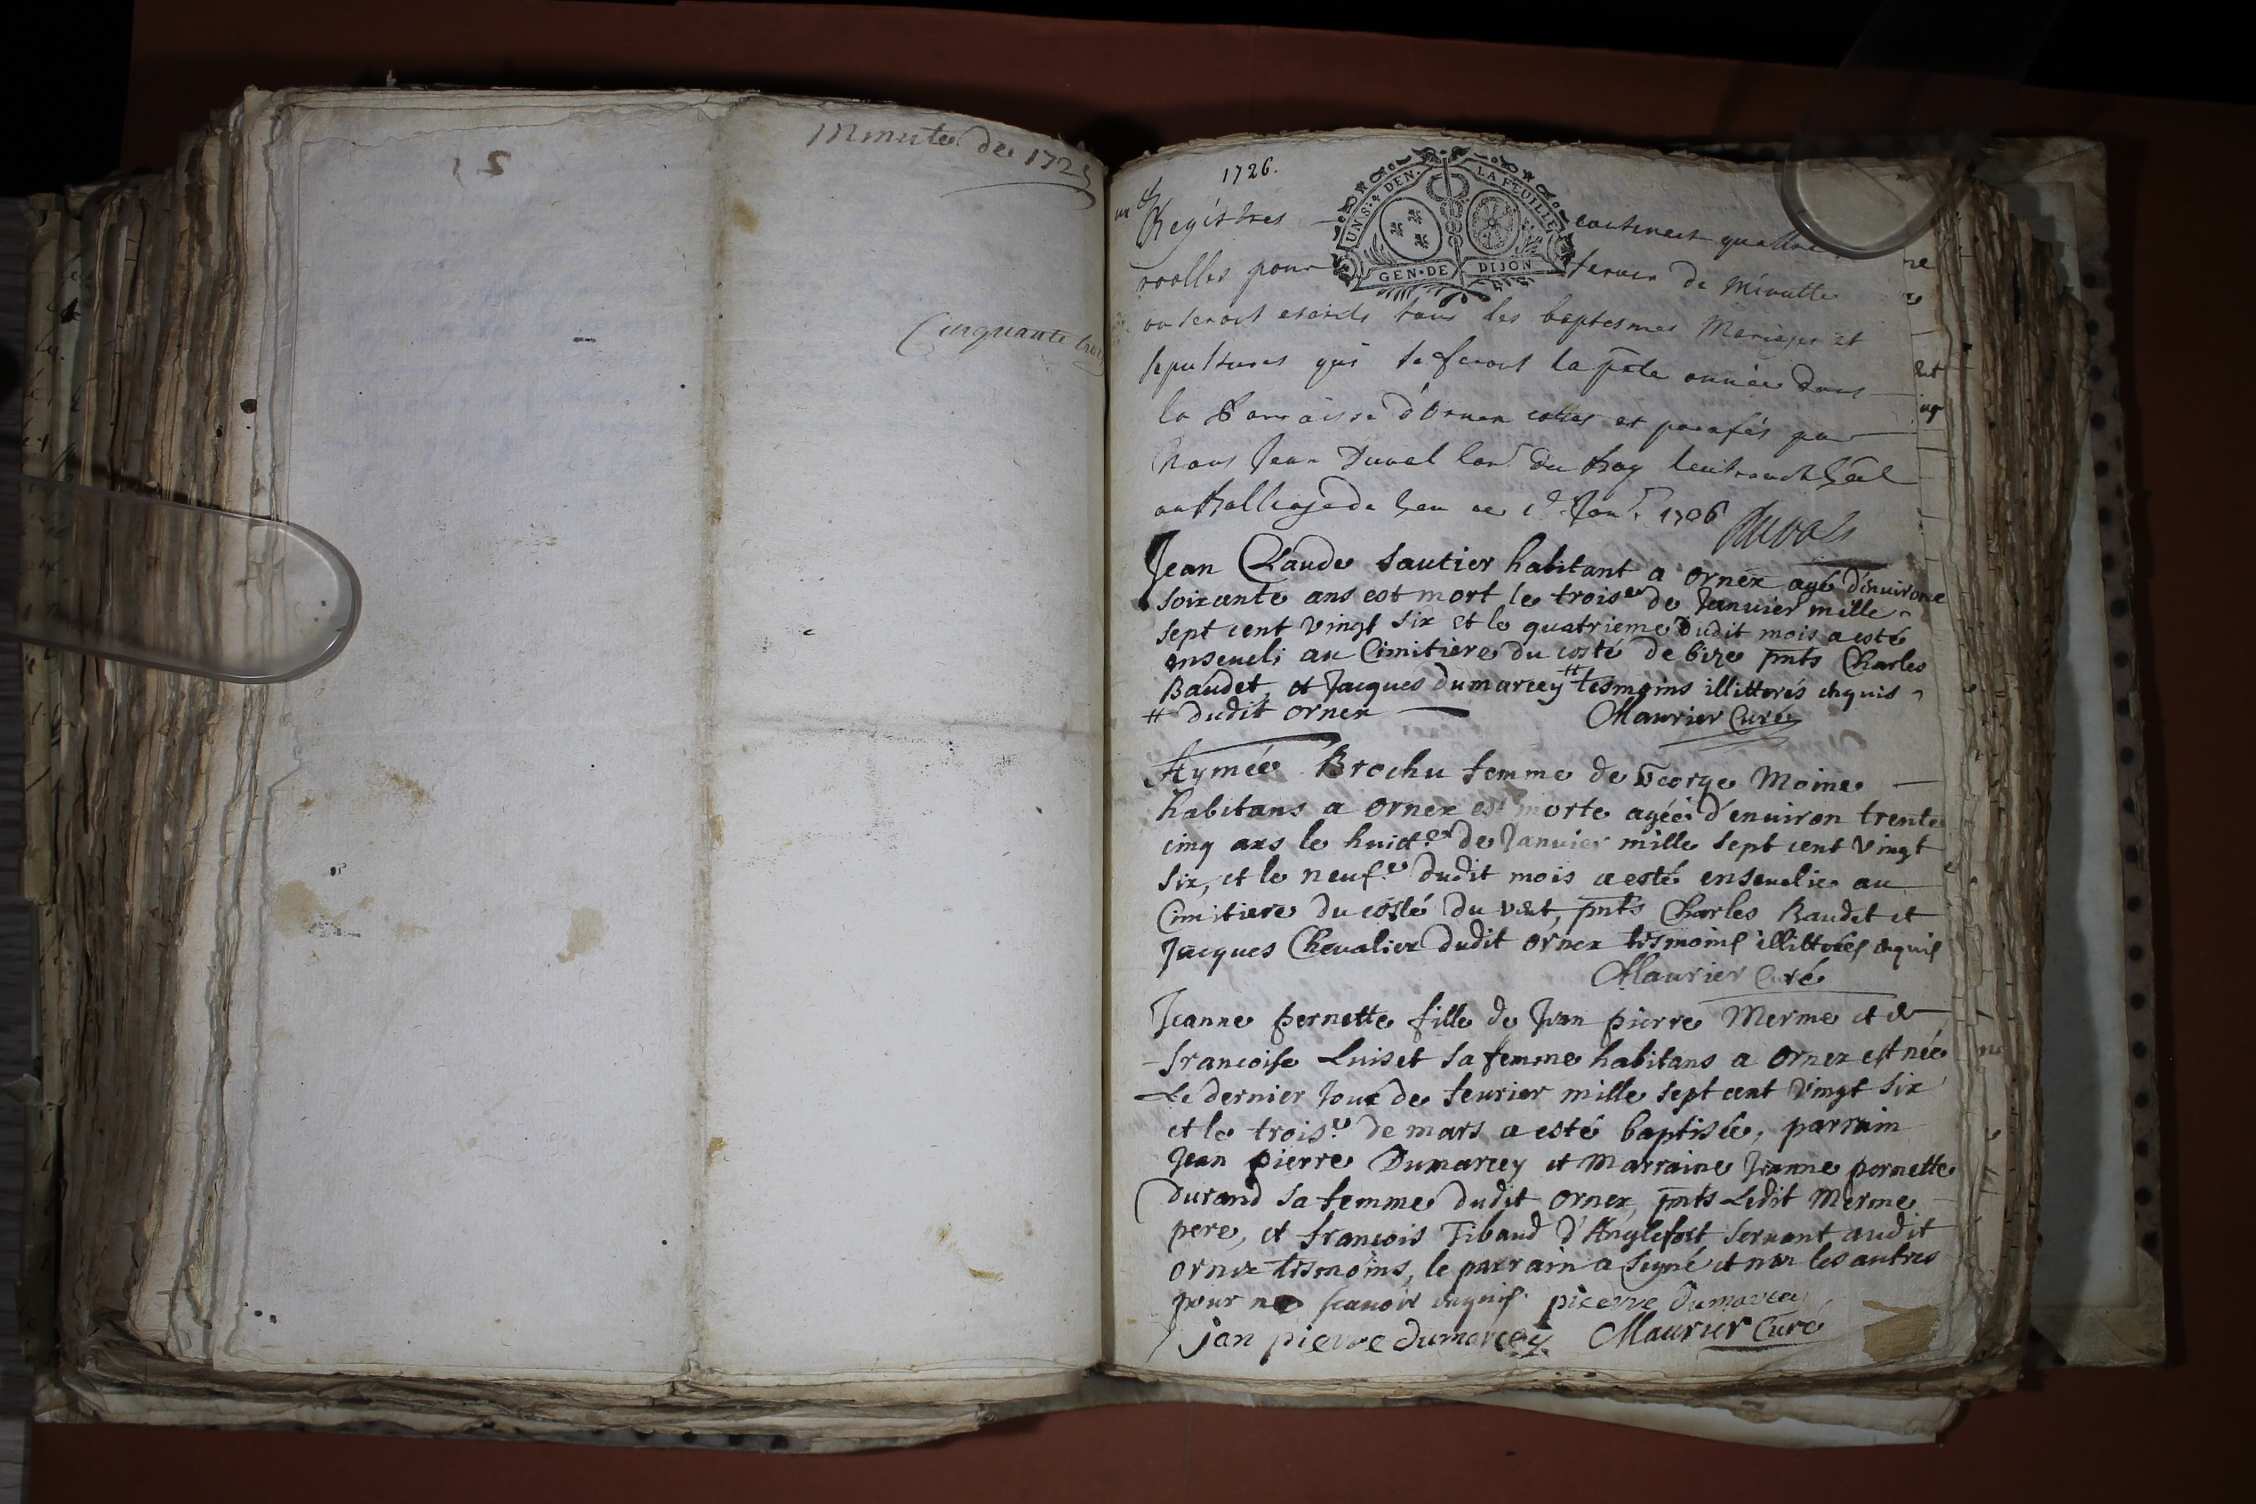 Minute de 1725
Cinquante trois
1726.
UN S: 4 DEN. LA FEUILLE
GEN. DE DIJON
Registres contenant quattre
roolles pour servir de minutte
ou seront escrits tous les baptesmes Mariages et
sepultures qui se feront la pnte année dans
la Parroisse d'Ornex cottés et parafés par
Nous Jean Duval du Roy
au Balliage de Gex ce 1726 Duval
Jean Claude Sautier habitant a Ornex agé d'environe
soixante ans est mort le troise. de Janvier mille
sept cent vingt six et le quatrieme dudit mois a esté
enseveli au Cimitiere du costé de bize pnts Charles
Baudet, et Jacques Dumarcey # tesmoins illitterés enquis
# dudit Ornex Maurier Curé
Aymée Brochu femme de George Moine
habitans a Ornex est morte agée d'environ trente
cinq ans le huict.e de Janvier mille sept cent vingt
six, et le neuf.e dudit mois a esté ensevelie au
Cimitiere du costé du vent, pnts Charles Baudet et
Jacques Chevalier dudit Ornex tesmoins illitterés enquis
Maurier Curé
Jeanne pernette fille de Jean pierre Merme et de
francoise Luiset sa femme habitans a Ornex est née
Le dernier Jour de fevrier mille sept cent vingt six
et le trois.e de mars a esté baptisée, parrain
Jean pierre Dumarcey et Marraine Jeanne pernette
Durand sa femme dudit Ornex, pnts Ledit Merme
pere, et francois Tibaud d'Anglefort servant audit
Ornex tesmoins, le parrain a signé et non les autres
pour ne scavoir enquis. pierre dumarcey
jan pierre dumarcey Maurier Curé